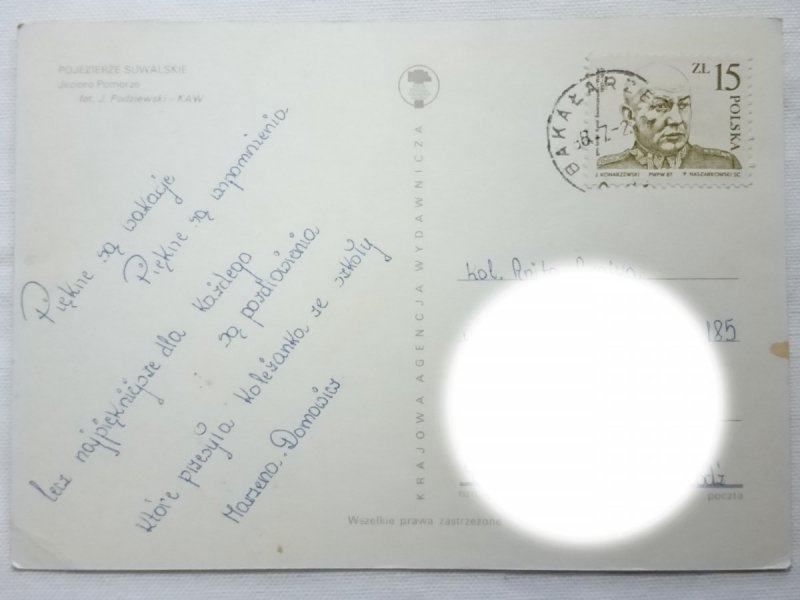 POJEZIERZE SUWALSKIE
Jezioro Pomorze
fot. J. Podziewski - KAW
Piękne są wakacje
Piękne są wspomnienia
lecz najpiękniejsze dla każdego
są pozdrowienia
które przesyła koleżanka ze szkoły
Marzena Domowicz
KRAJOWA AGENCJA WYDAWNICZA
Wszelkie prawa zastrzeżone
BAKAŁARZE
ZŁ 15
POLSKA
J. KONARZEWSKI PWPW 87 P. NASZARKOWSKI SC.
kol.
185
poczta